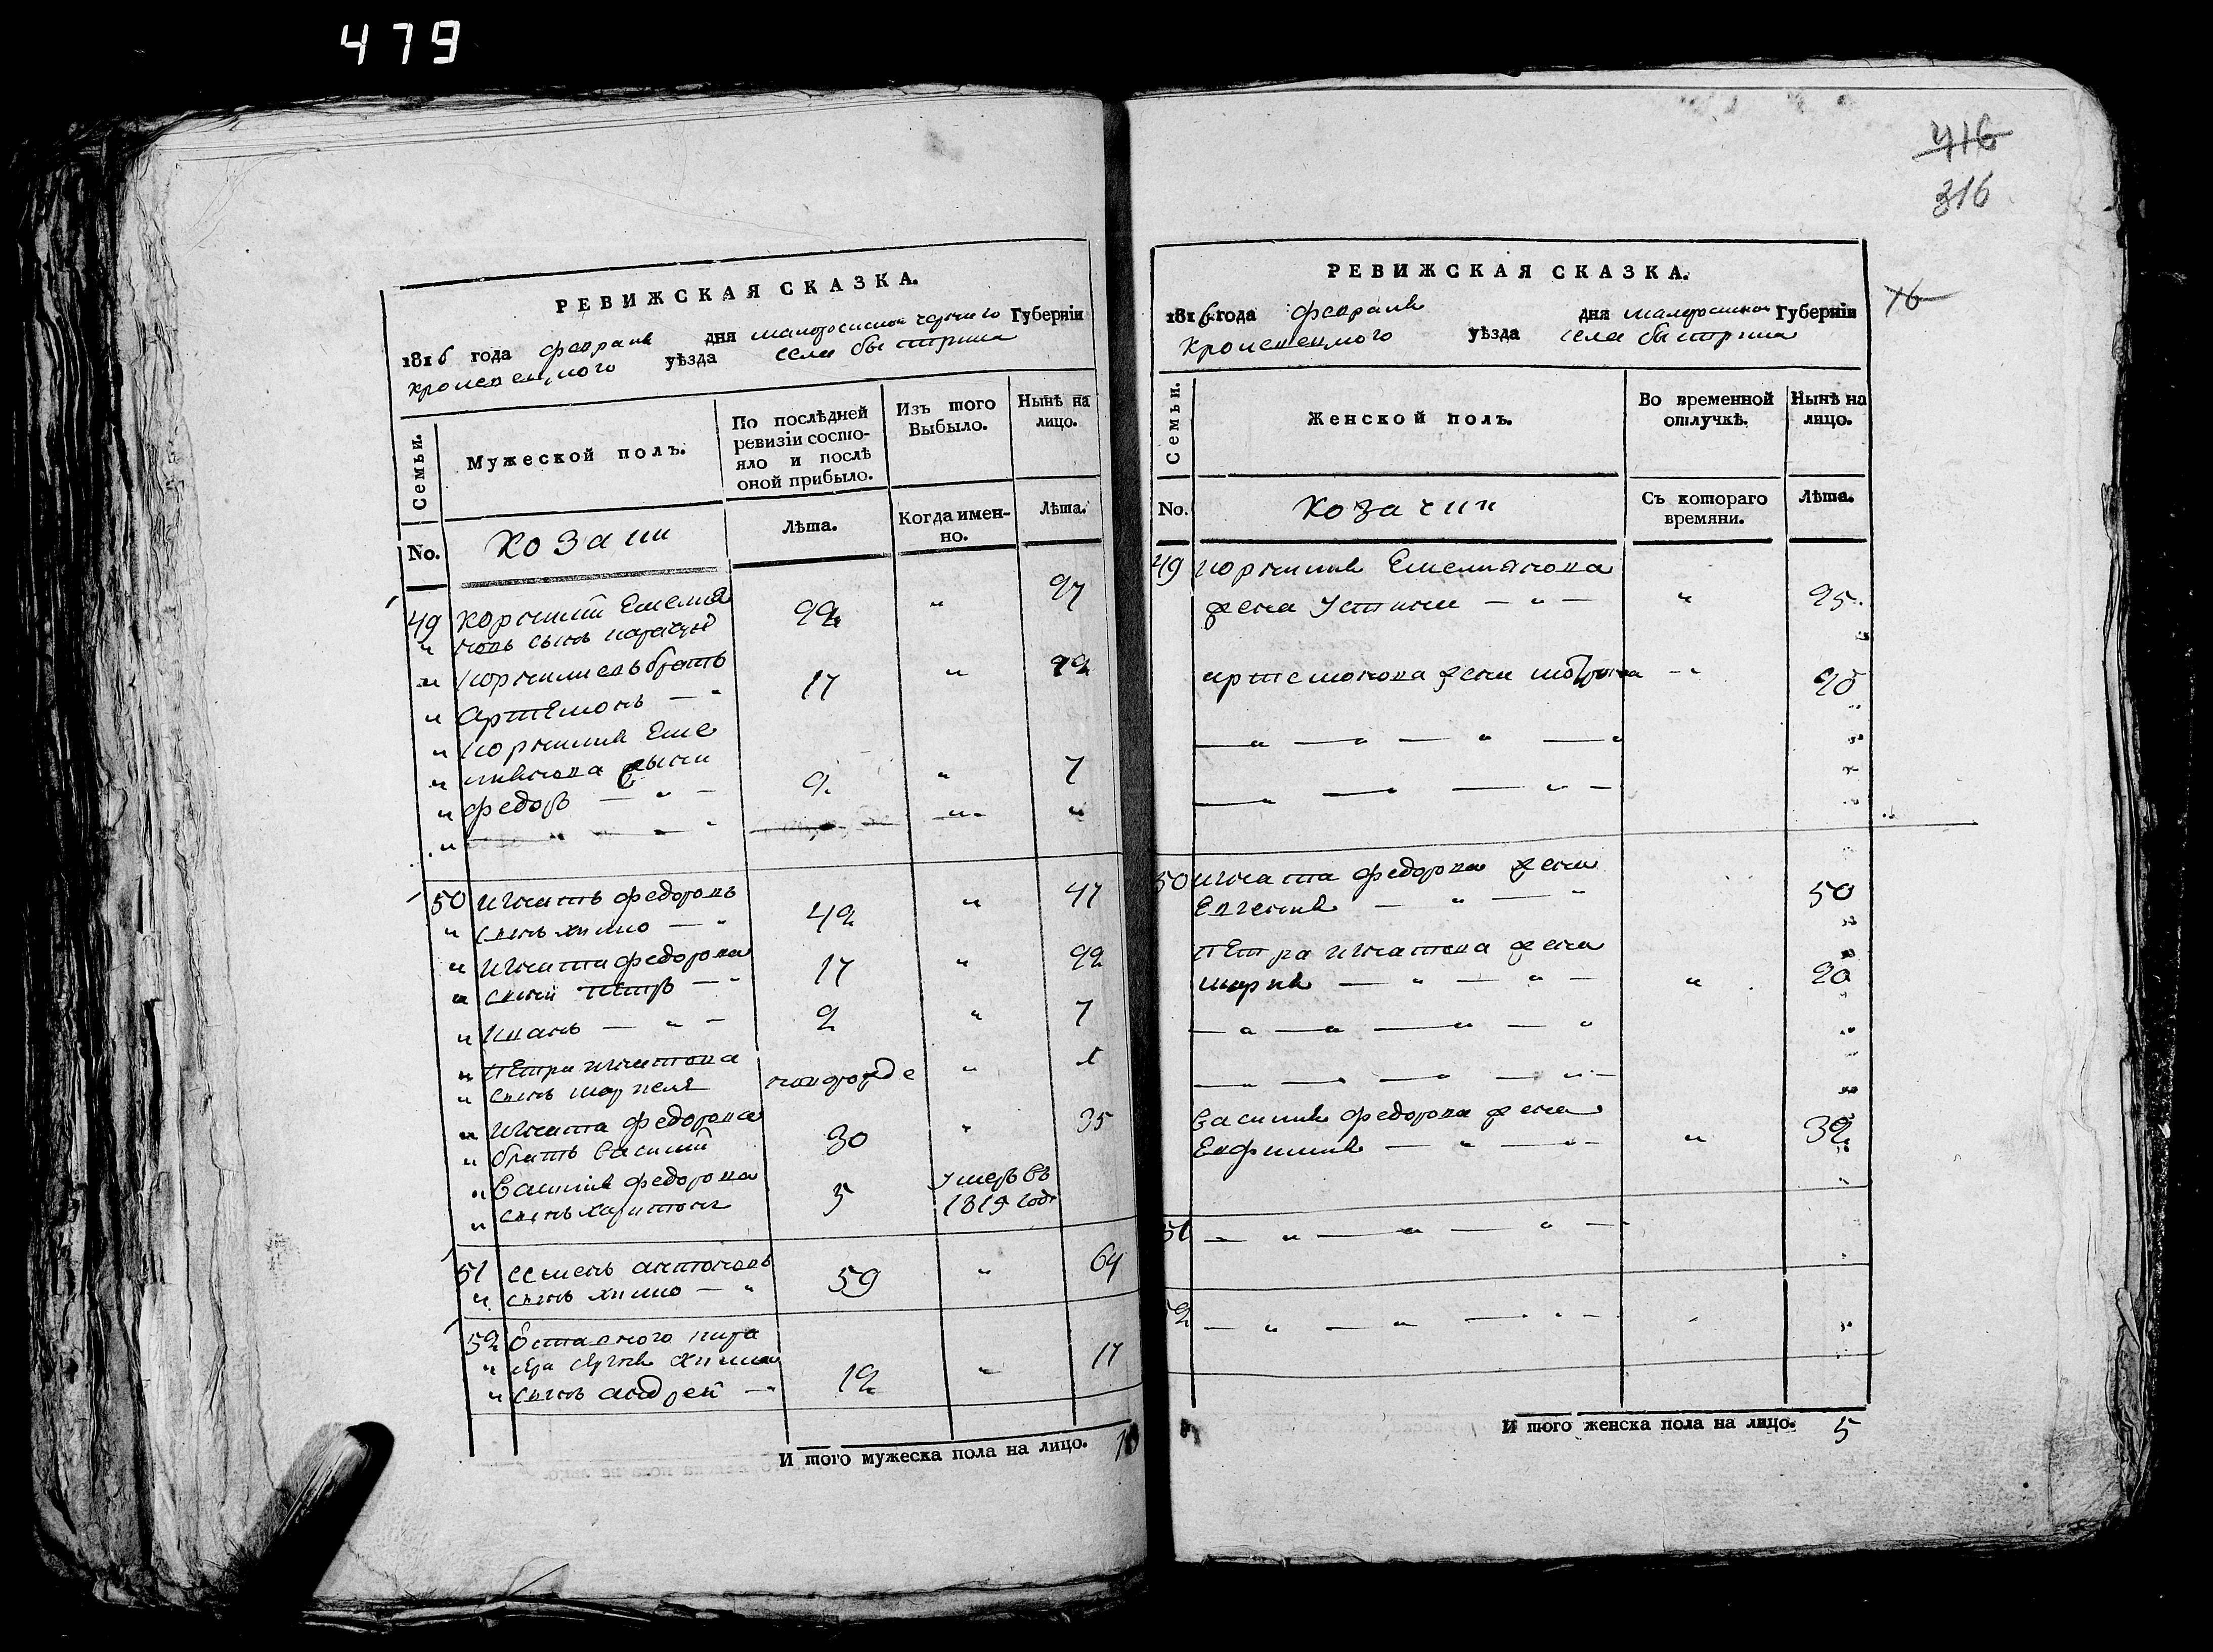 479
РЕВИЖСКАЯ СКАЗКА.
1816 года февраля дня малоросиской Губерніи
уѣзда села быстрика
Семьи. Мужеской полъ. По послѣдней ревизіи состояло и послѣ оной прибыло. Изъ того Выбыло. Нынѣ на лицо.
No. Козаки Лѣта. Когда именно. Лѣта.
49 Корнилий Емелия
новъ сынъ 22 " 27
" Корнилиевъ братъ
" Артемонъ — " 17 " 22
" Корнилия Еме
" лиянова сынъ
" федоръ — " — 2 " 7
50 Игнатъ федоровъ
" сынъ химко — " 42 " 47
" Игната федорова
" сынъ Петръ — " 17 " 22
" Иванъ — " — 2 " 7
" Петра игнатова
" сынъ " 1
" Игната федорова
" братъ василий 30 " 35
" Василия федорова умеръ въ
" сынъ харитонъ 5 1815 годе
51 семенъ антоновъ
" сынъ химко — " 59 " 64
52
" сынъ андрей — " 12 " 17
И того мужеска пола на лицо. 10
416
316
16
РЕВИЖСКАЯ СКАЗКА.
1816 года февраля дня малоросиской Губерніи
уѣзда села быстрика
Семьи. Женской полъ. Во временной отлучкѣ. Нынѣ на лицо.
No. Козачки Съ котораго времяни. Лѣта.
49 Корнилия Емелиянова
жена Устиния — " — " 25
артемонова жена — " 20
50 Игната федорова жена
Евгения — " — " 50
Петра игнатова жена
мария — " — " — " 20
Василия федорова жена
Евфимия — " — " — " 32
51 — " — " — " —
52 — " — " — " —
И того женска пола на лицо. 5